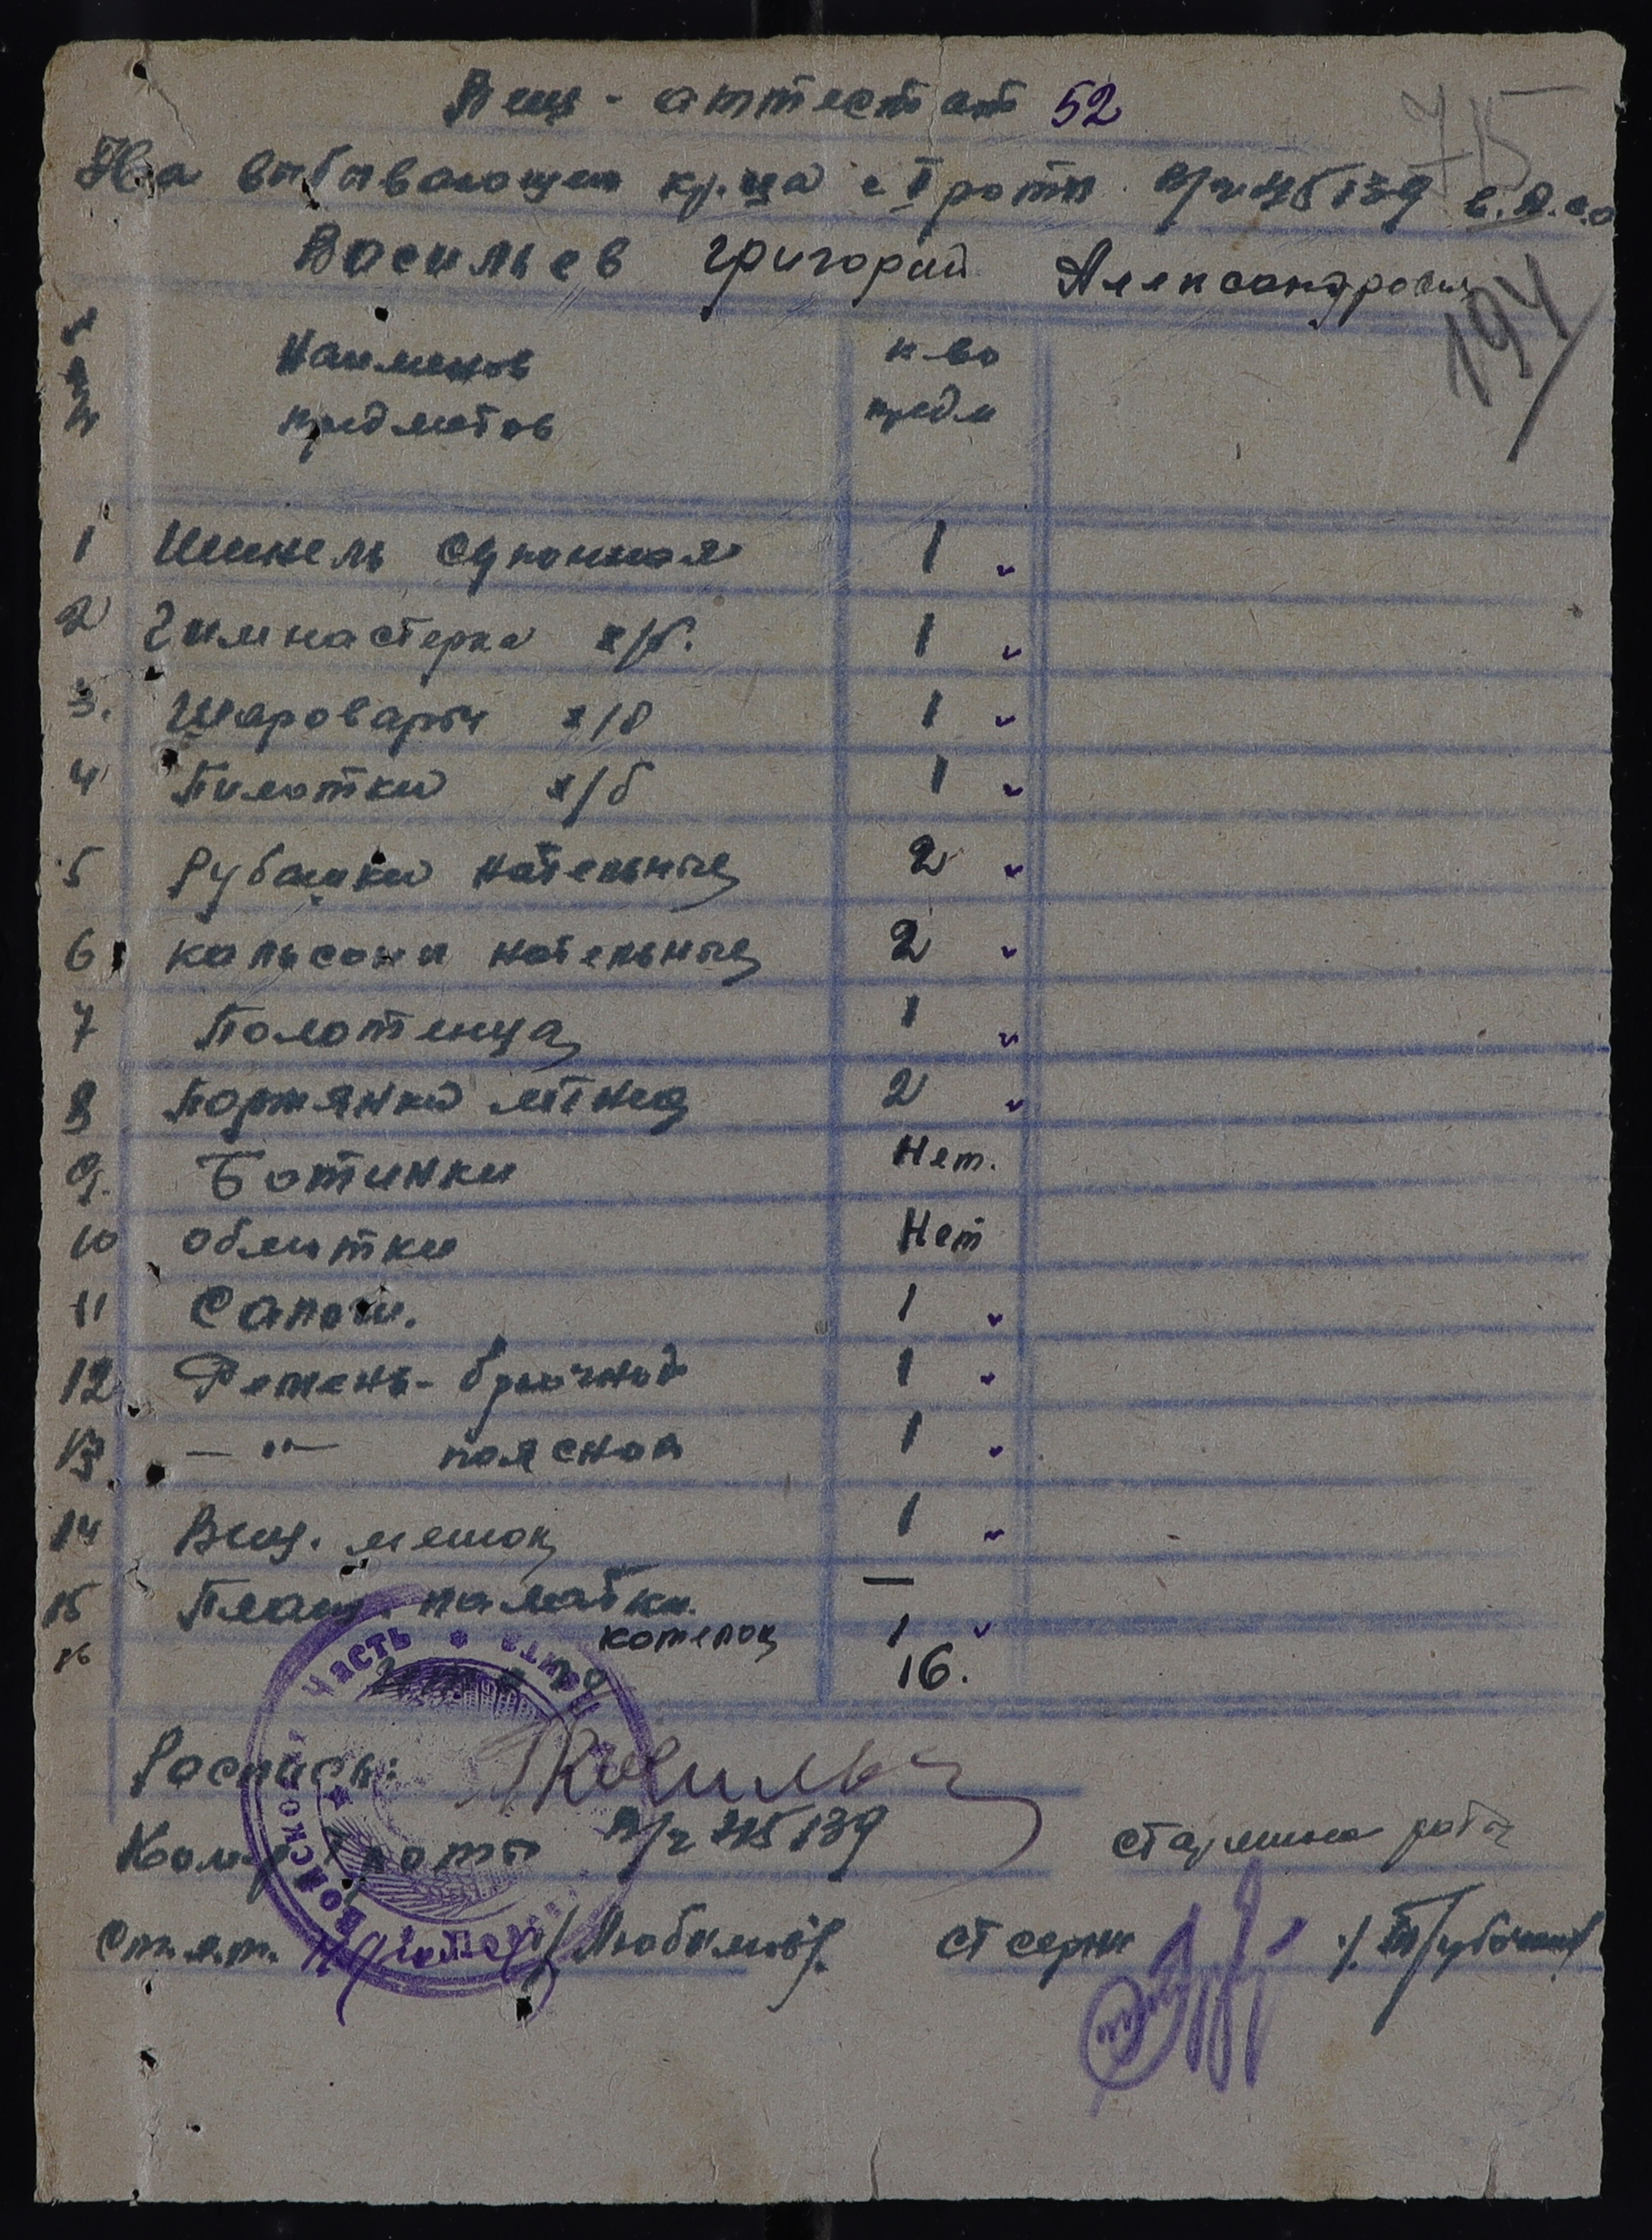 Вещ - аттестат 52
715
На выбывающего кр-ца с I роты в/ч 45139
Васильев Григорий Александрович
194
Наименов к-во
предметов предм
1 Шинель суконная 1
2 Гимнастерка х/б. 1
3. Шаровары х/б 1
4 Пилотки х/б 1
5 Рубашки нательные 2
6 кальсоны нательные 2
7 Полотенца 1
8 Портянки летние 2
9. Ботинки Нет.
10 обмотки Нет
11 Сапоги. 1
12 Ремень - брючной 1
13 — " — поясной 1
14 Вещ. мешок 1
15 Плащ. палатки —
16 котелок 1
16.
Роспись:
Ком-р роты в/ч 45139 старшина роты
Ст. л-т. /Любимов/. ст серж
ВОЙСКОВАЯ ЧАСТЬ